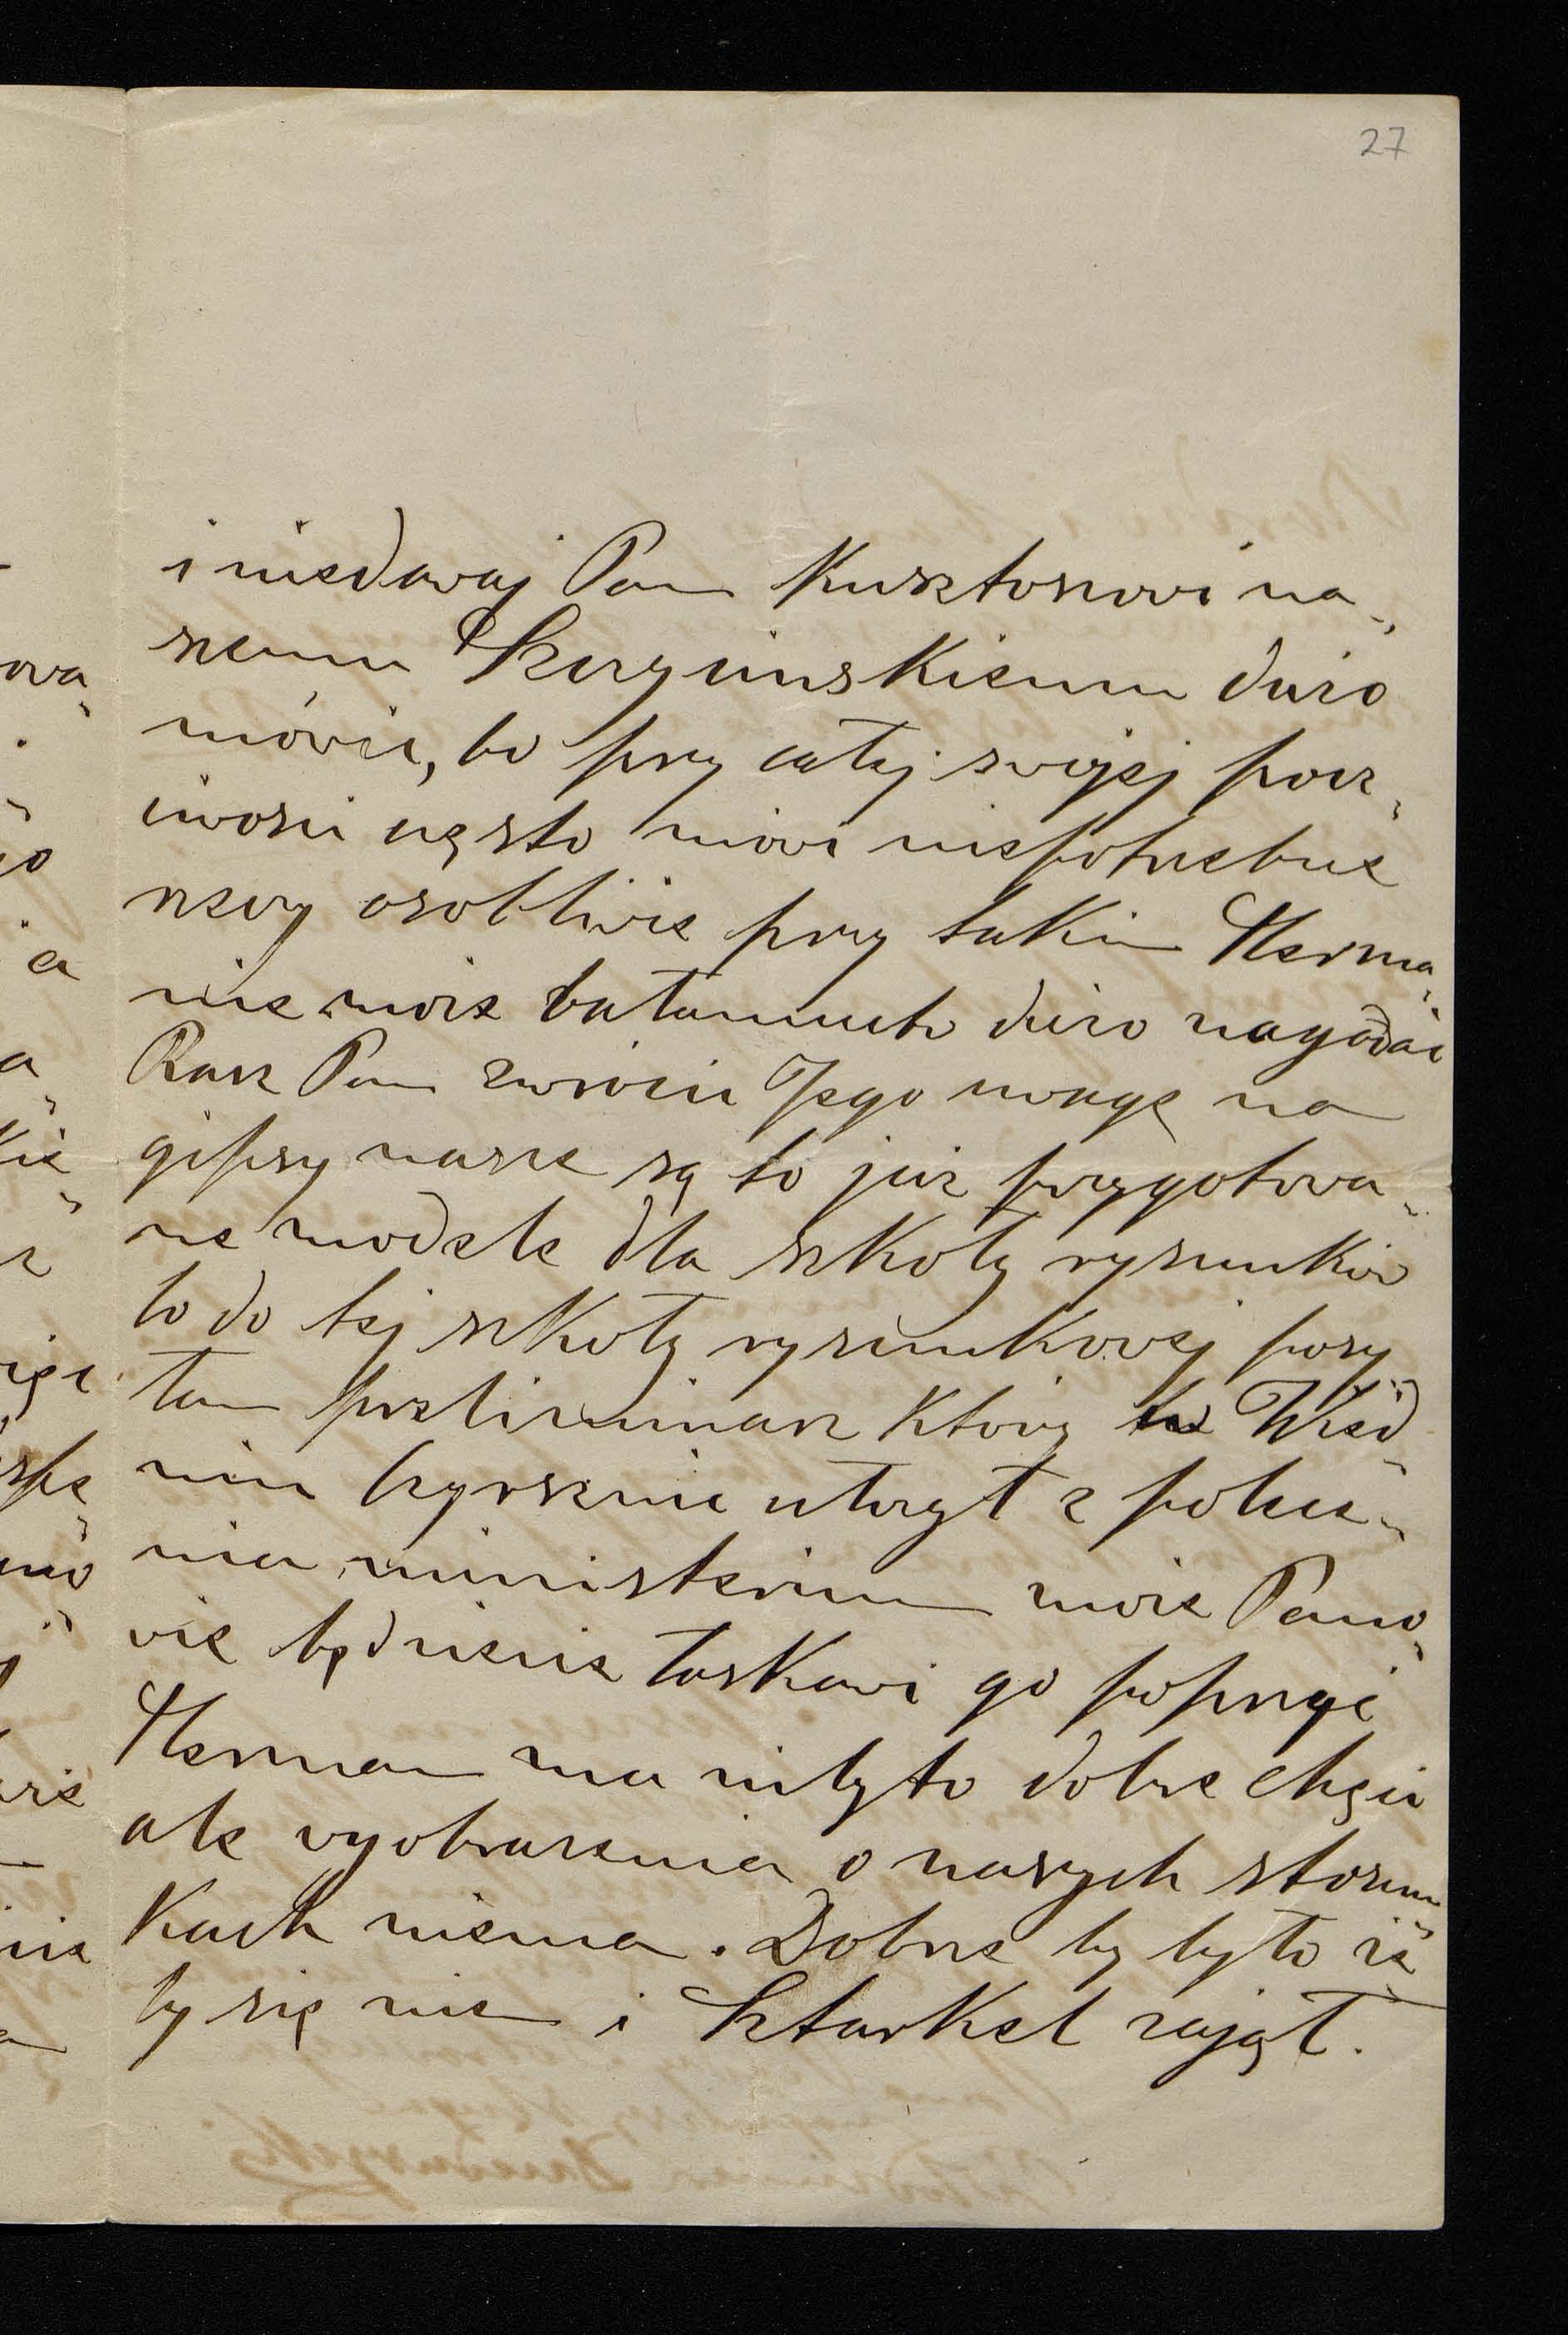 27
i niedawaj Pan Kusztosowi na-
szemu Skrzyńskiemu dużo
mówić, bo przy całej swojej pocz-
ciwości często mówi niepotrzebne
rzeczy osobliwie przy takim Herma-
nie może bałamuctw dużo nagadać
Racz Pan zwrócić Jego uwagę na
gipsy nasze są to już przygotowa-
ne modele dla szkoły rysunków
to do tej szkoły rysunkowej posy-
łam preliminarz który w Wied-
niu Hyrszenie ułożył z polece-
nia ministerium może Pano-
wie będziecie łaskawi go poprzeć
Herman ma niby to dobre chęci
ale wyobrażenia o naszych stosun-
kach niema. Dobrze by było iż
by się nie i Starkel zajął.